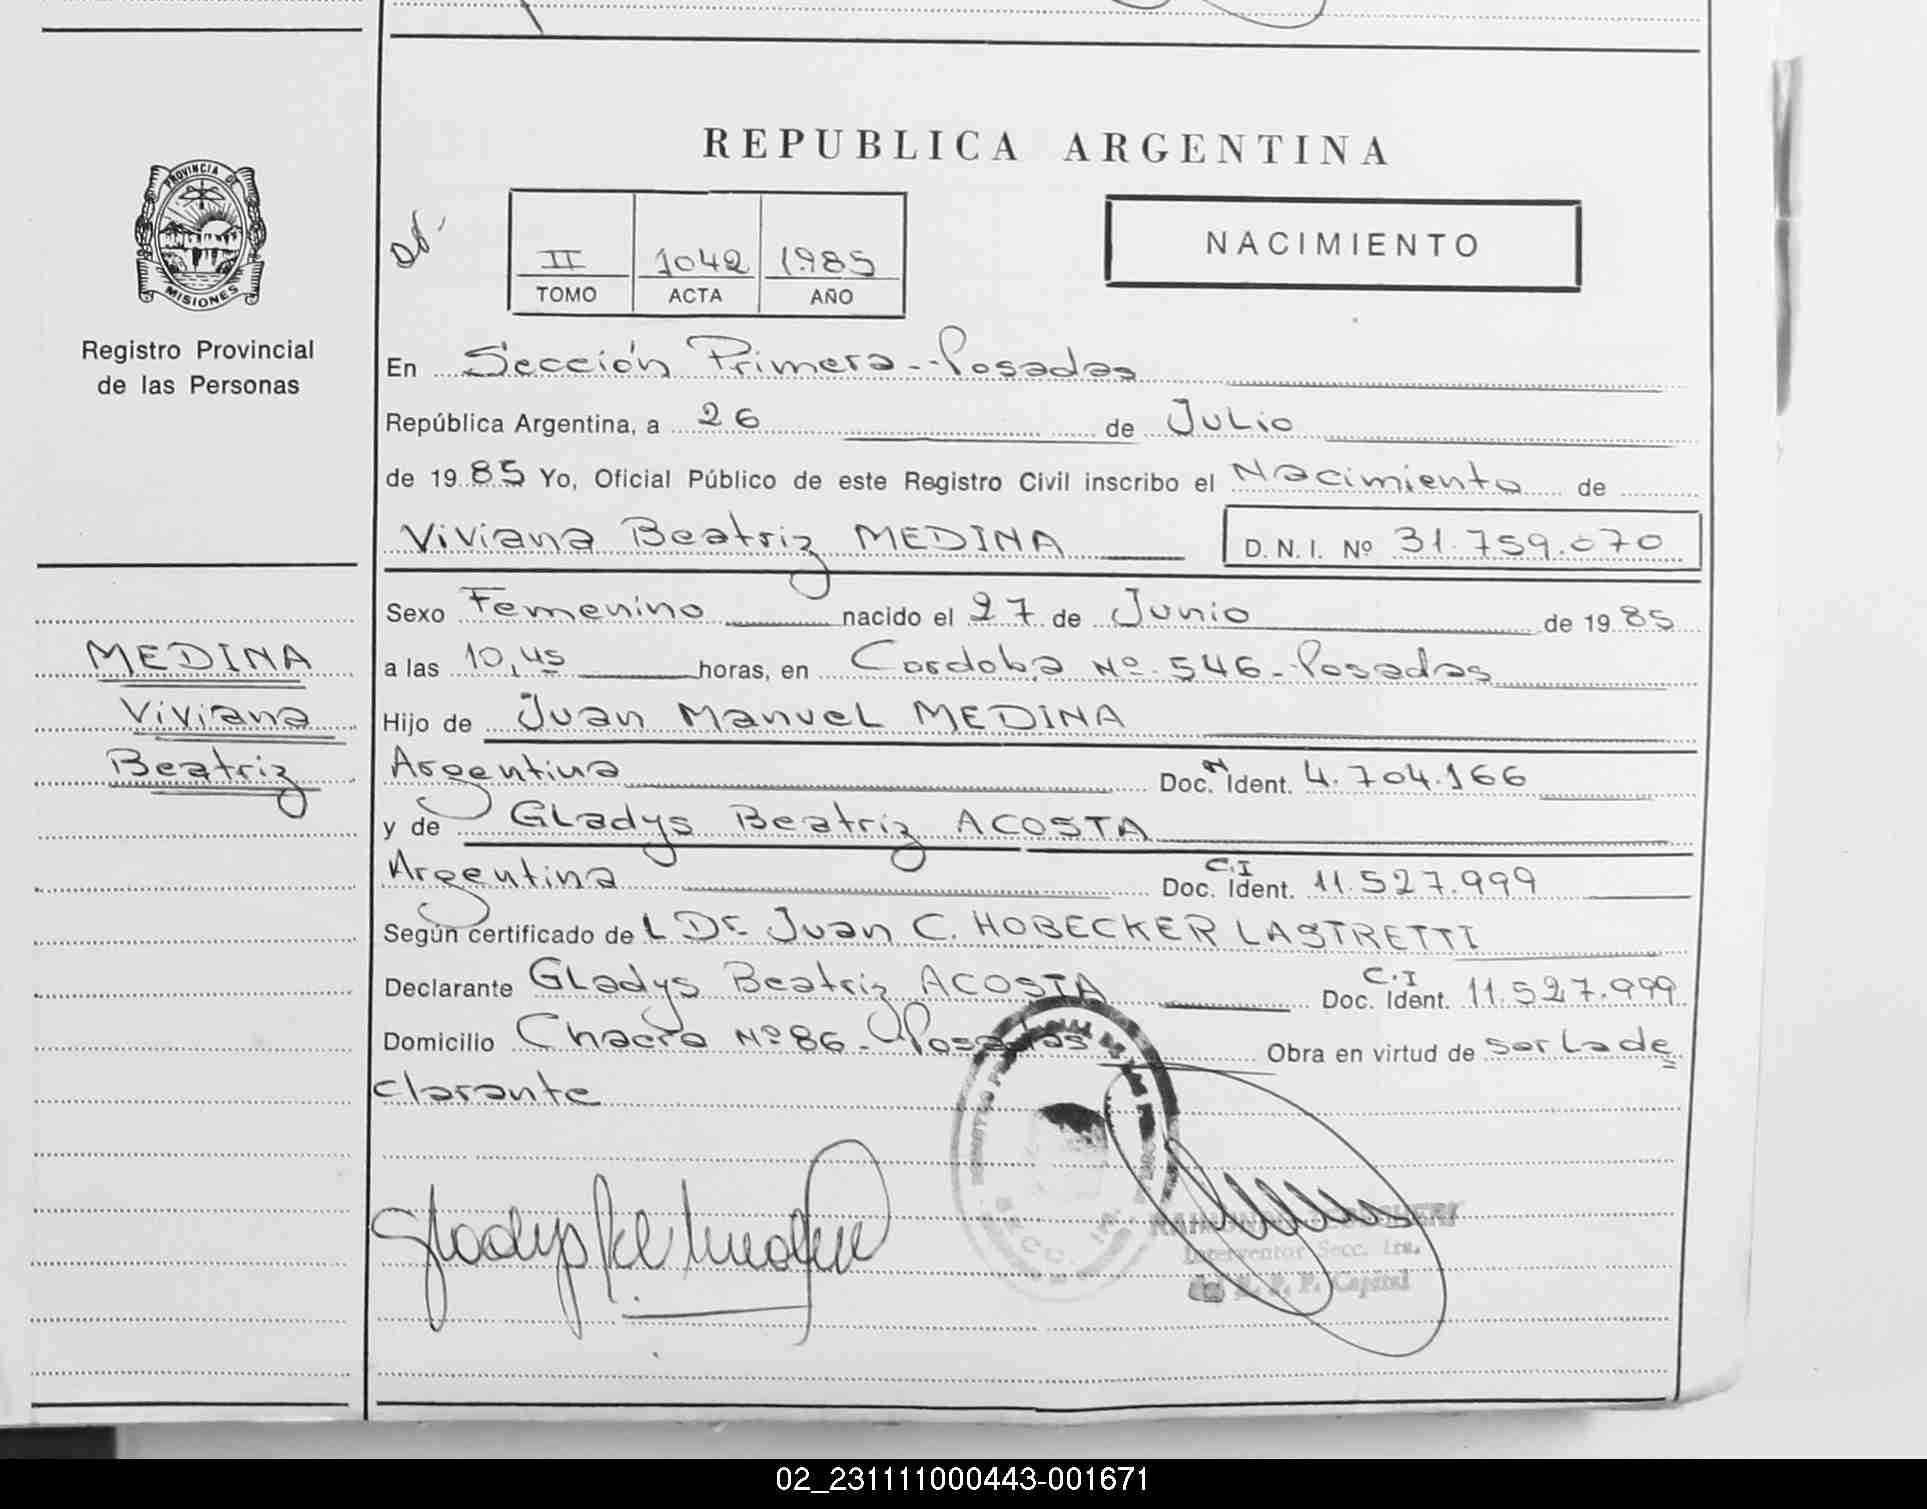 REPUBLICA ARGENTINA
PROVINCIA DE
MISIONES
Registro Provincial
de las Personas
II 1042 1985
TOMO ACTA AÑO
NACIMIENTO
En Sección Primera - Posadas
República Argentina, a 26 de Julio
de 1985 Yo, Oficial Público de este Registro Civil inscribo el Nacimiento de
Viviana Beatriz MEDINA D.N.I. Nº 31.759.070
Sexo Femenino nacido el 27 de Junio de 1985
a las 10,45 horas, en Cordoba Nº 546 - Posadas
Hijo de Juan Manuel MEDINA
Argentina Doc. Ident. 4.704.166
y de Gladys Beatriz ACOSTA
Argentina C.I Doc. Ident. 11.527.999
Según certificado del Dr. Juan C. HOBECKER LASTRETTI
Declarante Gladys Beatriz ACOSTA C.I Doc. Ident. 11.527.999
Domicilio Chacra Nº 86 - Posadas Obra en virtud de ser la de
clarante
MEDINA
Viviana
Beatriz
Interventor Secc. 1ra.
R. P. P. Capital
02_231111000443-001671